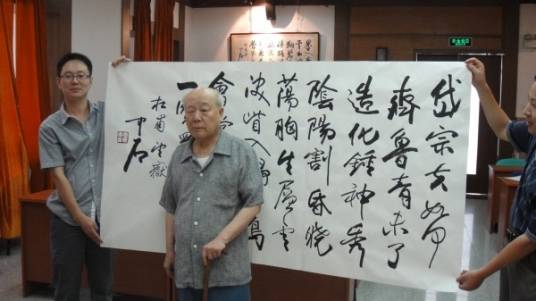 岱宗夫如何
齊魯青未了
造化鍾神秀
陰陽割昏曉
蕩胸生層雲
決眥入歸鳥
會
一
杜甫望嶽
中石